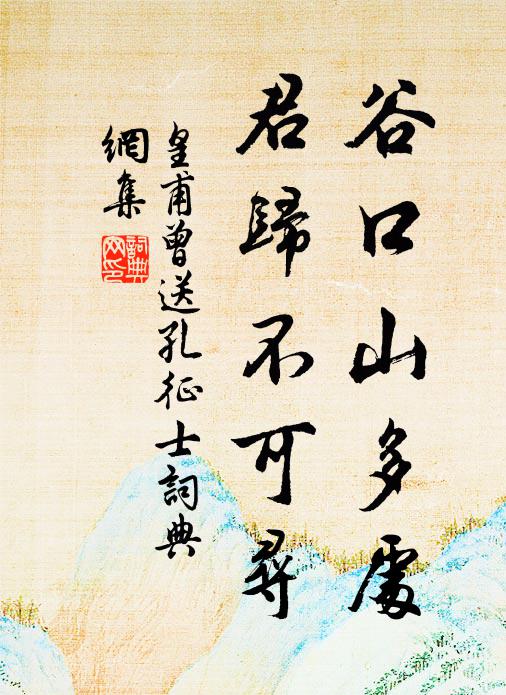 谷口山多處
君歸不可尋
皇甫曾送孔征士詞典
網集
詞典
网印